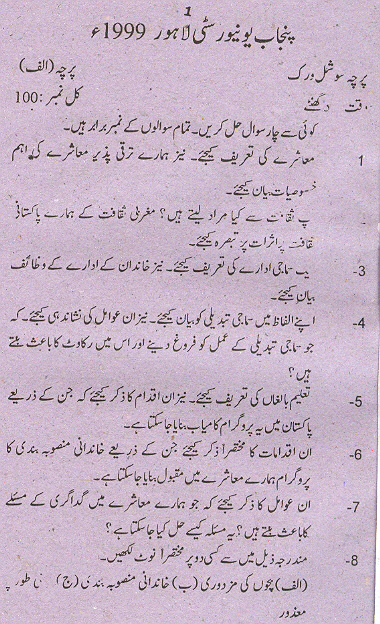 1
پنجاب یونیورسٹی لاہور 1999ء
پرچہ سوشل ورک پرچہ (الف)
وقت گھنٹے کل نمبر :100
کوئی سے چار سوال حل کریں۔ تمام سوالوں کے نمبر برابر ہیں۔
1 معاشرے کی تعریف کیجئے۔ نیز ہمارے ترقی پذیر معاشرے کی اہم
خصوصیات بیان کیجئے۔
پ ثقافت سے کیا مراد لیتے ہیں؟ مغربی ثقافت کے ہمارے پاکستانی
ثقافت پر اثرات پر تبصرہ کیجئے۔
3- سماجی ادارے کی تعریف کیجئے۔ نیز خاندان کے ادارے کے وظائف
بیان کیجئے۔
4- اپنے الفاظ میں سماجی تبدیلی کو بیان کیجئے۔ نیز ان عوامل کی نشاندہی کیجئے۔ کہ
جو سماجی تبدیلی کے عمل کو فروغ دینے اور اس میں رکاوٹ کا باعث بنتے
ہیں؟
5- تعلیم بالغاں کی تعریف کیجئے۔ نیز ان اقدام کا ذکر کیجئے کہ جن کے ذریعے
پاکستان میں یہ پروگرام کامیاب بنایا جا سکتا ہے۔
6- ان اقدامات کا مختصراً ذکر کیجئے جن کے ذریعے خاندانی منصوبہ بندی کا
پروگرام ہمارے معاشرے میں مقبول بنایا جا سکتا ہے۔
7- ان عوامل کا ذکر کیجئے کہ جو ہمارے معاشرے میں گداگری کے مسئلے
کا باعث بنتے ہیں؟ یہ مسئلہ کیسے حل کیا جا سکتا ہے؟
8- مندرجہ ذیل میں سے کسی دو پر مختصراً نوٹ لکھیں۔
(الف) بچوں کی مزدوری (ب) خاندانی منصوبہ بندی (ج) طور پر
معذور